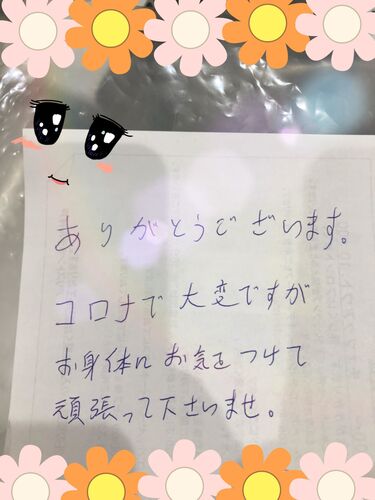 ありがとうございます。
コロナで大変ですが
お身体にお気をつけて
頑張って下さいませ。